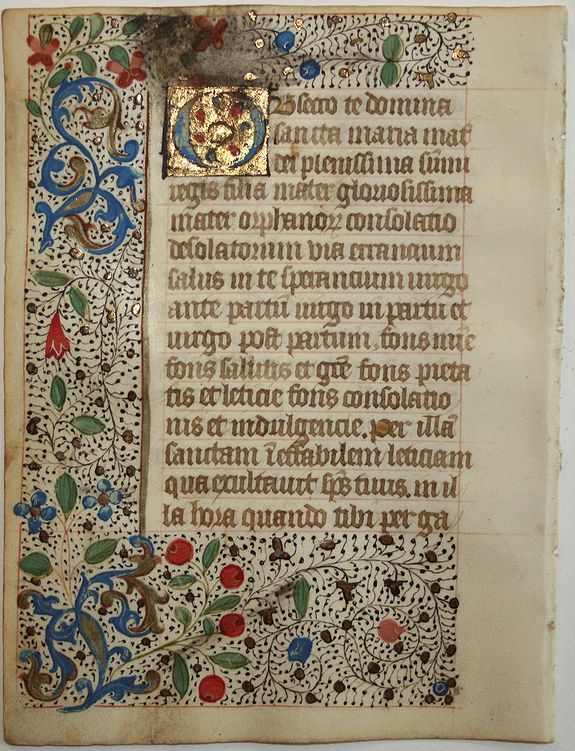 Obsecro te domina
sancta maria mat
dei plenissima summi
regis filia mater gloriosissima
mater orphanoꝝ consolatio
desolatorum via errancium
salus in te sperancium virgo
ante partū virgo in partū et
virgo post partum, fons mīe
fons salutis et grē fons pieta
tis et leticie fons consolatio
nis et indulgencie. per illā
sanctam īeffabilem leticiam
qua exultauit sp̄s tuus. in il
la hora quando tibi per ga